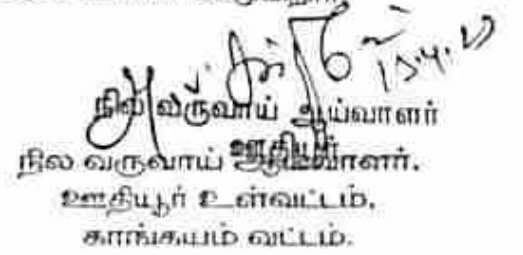 15.4.17
நில வருவாய் ஆய்வாளர்
ஊதியூர்
நில வருவாய் ஆய்வாளர்.
ஊதியூர் உள்வட்டம்,
காங்கயம் வட்டம்.